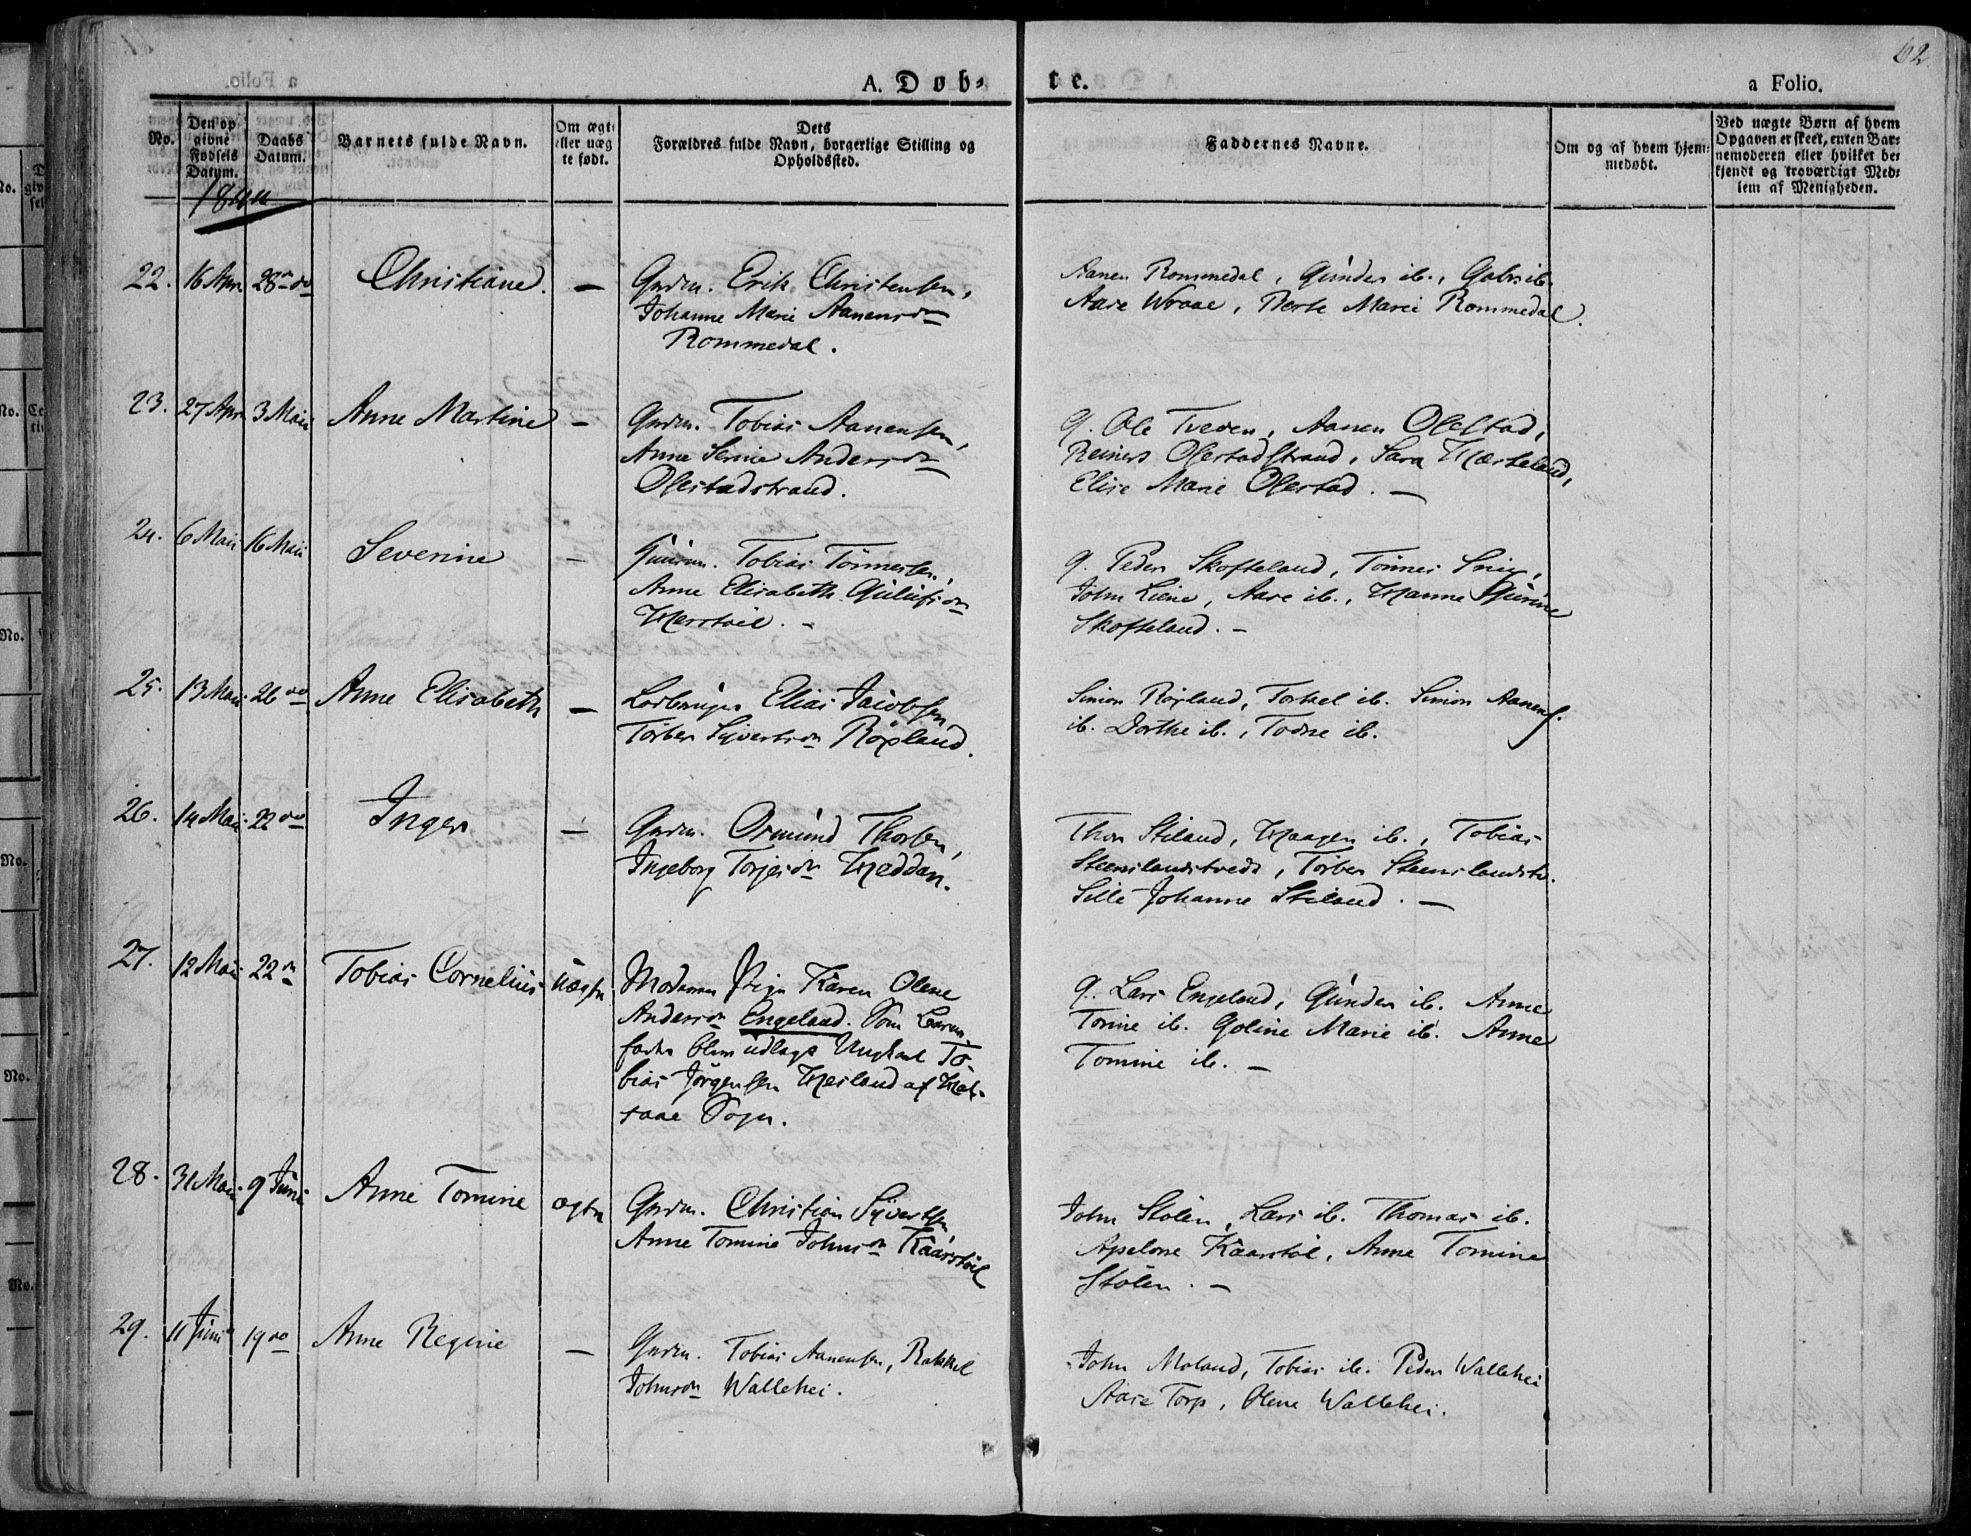 62
A. Døb-
te.
a Folio.
No.
Den op
givne
Fødsels
Datum.
Daabs
Datum.
Barnets fulde Navn.
Om ægte
eller uæg
te født.
Dets
Forældres fulde Navn, borgerlige Stilling og
Opholdssted.
Faddernes Navne.
Om og af hvem hjem-
medøbt.
Ved uægte Børn af hvem
Opgaven er skeet, enten Bar-
nemoderen eller hvilket be-
kjendt og troværdigt Med-
lem af Menigheden.
1844
22. 16 Apr. 28de do Christiane. —
Gmdm. Erik Christensen,
Johanne Marie Aanensdn
Rommedal.
Aanen Rommedal, Günder ib., Gabriel ib.
Aase Wraae, Berte Marie Rommedal.
23. 27 Apr. 3 Maii Anne Martine —
Gmdm. Tobias Aanensen,
Anne Serine Andersdn
Olestadstrand.
g. Ole Tveden, Aanen Olestad,
Reiners Olestadstrand, Sara Hærkeland,
Elise Marie Olestad. —
24. 6 Maii 16 Maii Severine —
Tobias Tønnesen,
Anne Elisabeth
g. Peder Skofteland, Tönnes
John Liene, Aase ib., Hanne
Skofteland. —
25. 13 Maii 26 do Anne Elisabeth —
Elias Jacobsen,
Tørber Syvertsdn Røpland.
Simon Røpland, Torkel ib. Simon Aanens.
ib. Dorthe ib., Todne ib.
26. 14 Maii 22 do Inger —
Gmdm. Ormünd Thorsen,
Ingeborg Torjesdn Heddan.
Thor Stiland, Haagen ib., Tobias
Steenslandstvedt, Tørber Steenslandstv.
Sille Johanne Stiland. —
27. 12 Maii 22 do Tobias Cornelius uægte
Moderen Pige Karen Olene
Andersdn Engeland. Som Barne-
fader blev udlagt Ungkarl To-
bias Jörgensen Hesland af Hol-
saae Sogn.
g. Lars Engeland, Günder ib. Anne
Tonine ib. Goline Marie ib. Anne
Tomine ib. —
28. 31 Maii 9 Juni Anne Tomine ægte
Gmdm. Christian Syvertsen,
Anne Tomine Johnsdn Kaarstøl
John Stölen, Lars ib. Thomas ib.
Apelone Kaarstöl, Anne Tomine
Stölen. —
29. 11 Juni 19 do Anne Regine —
Gmdm. Tobias Aanensen, Rakkel
Johnsdn Wallehei.
John Moland, Tobias ib. Peder Wallehei
Aase Torp, Olene Wallehei.